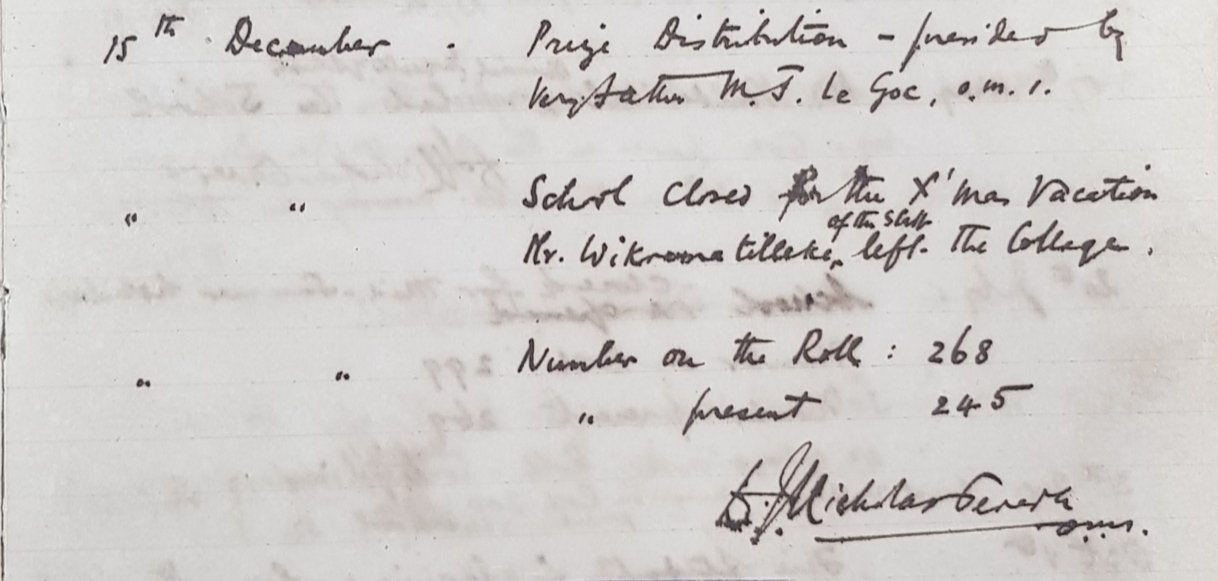 15th December. Prize Distribution - presided by
Very Father M. J. Le Goc, o.m.i.
" " School closed for the X'mas Vacation
of the staff
Mr. Wikramatilleke, left the College.
" " Number on the Roll : 268
" present 245
Nicholas Perera
o.m.i.